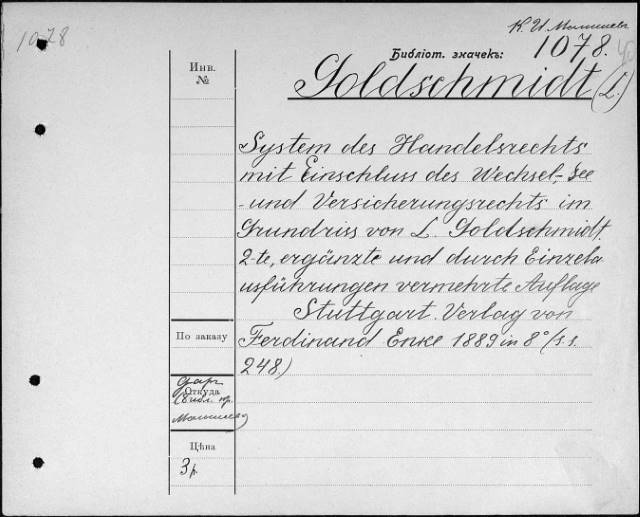 1078
К. И. Малышев
Библіот. значекъ: 1078.
Инв.
№
Goldschmidt (L.)
System des Handelsrechts
mit Einschluss des Wechsel-, See
-und Versicherungsrechts im
Grundriss von L. Goldschmidt.
2-te, ergänzte und durch Einzela
usführungen vermehrte Auflage
Stuttgart. Verlag von
По заказу
Ferdinand Enke 1889 in 8° (s.s.
248)
Даръ
Откуда
Цѣна
3 р.